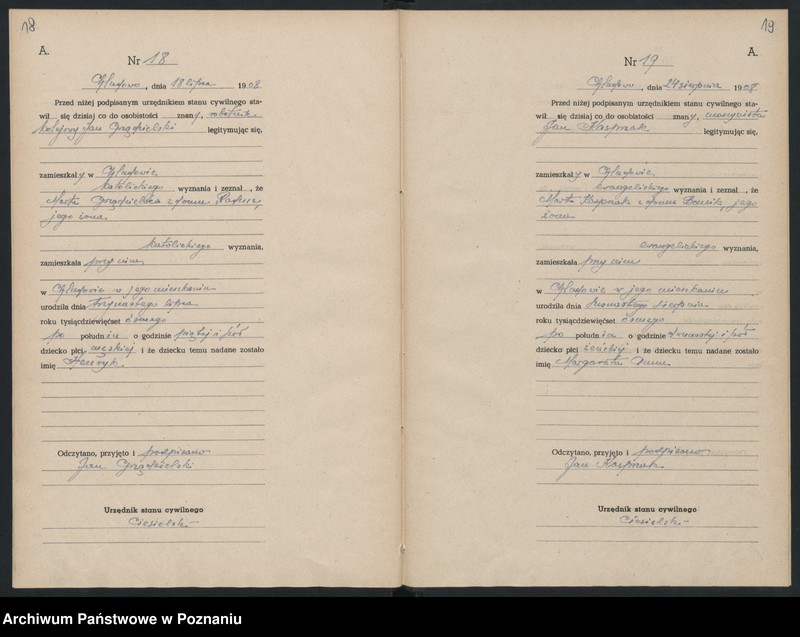 18
A.
Nr 18
, dnia 18 lipca 1908
Przed niżej podpisanym urzędnikiem stanu cywilnego sta-
wił się dzisiaj co do osobistości znany, robotnik
kolejowy Jan legitymując się,
zamieszkały w
katolickiego wyznania i zeznał, że
Marta z domu
jego żona
katolickiego wyznania,
zamieszkała przy nim
w w jego mieszkaniu
urodziła dnia trzynastego lipca
roku tysiącdziewięćset ósmego
po połudn iu o godzinie piątej i pół
dziecko płci męskiej i że dziecku temu nadane zostało
imię Henryk.
Odczytano, przyjęto i podpisano
Jan
Urzędnik stanu cywilnego
Ciesielski
19
A.
Nr 19
, dnia 24 sierpnia 1908
Przed niżej podpisanym urzędnikiem stanu cywilnego sta-
wił się dzisiaj co do osobistości znany, maszynista
Jan Kasprzak legitymując się,
zamieszkały w
ewangelickiego wyznania i zeznał, że
Marta Kasprzak z domu jego
żona
ewangelickiego wyznania,
zamieszkała przy nim
w w jego mieszkaniu
urodziła dnia sierpnia
roku tysiącdziewięćset ósmego
po połudn iu o godzinie i pół
dziecko płci żeńskiej i że dziecku temu nadane zostało
imię Margareta
Odczytano, przyjęto i podpisano
Jan Kasprzak
Urzędnik stanu cywilnego
Ciesielski
Archiwum Państwowe w Poznaniu